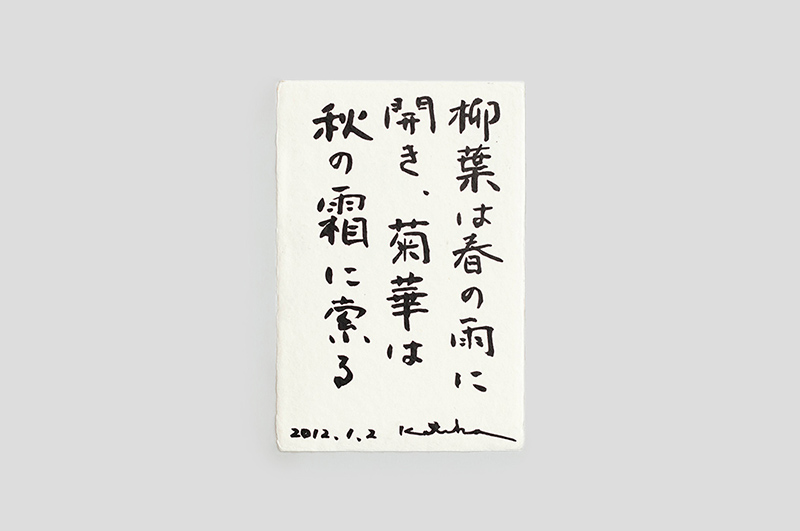 柳葉は春の雨に
開き、菊華は
秋の霜に索る
2012.1.2